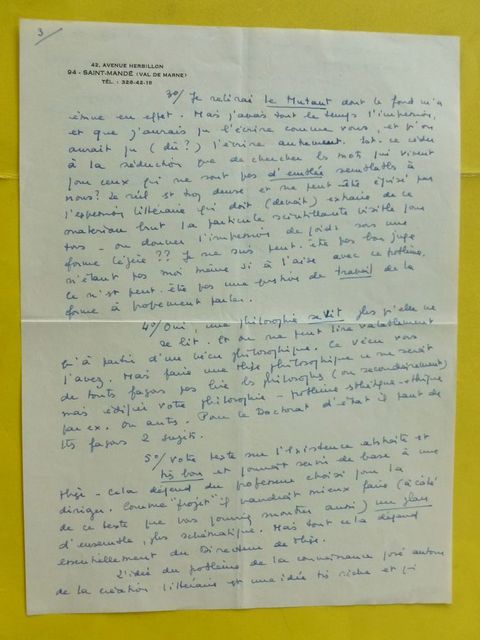 3
42, AVENUE HERBILLON
94 - SAINT-MANDÉ (VAL DE MARNE)
TÉL. : 328-42-18
3°/ Je relirai le Mutant dont le fond m'a
émue en effet. Mais j'avais tout le temps l'impression,
et que j'aurais pu l'écrire comme vous, et qu'on
aurait pu (dû ?) l'écrire autrement. Est-ce céder
à la séduction que de chercher les mots qui vivent
pour ceux qui ne sont pas d'emblée semblables à
nous ? Le réel est trop dense et ne peut être épuisé par
l'expression littéraire qui doit (devrait) extraire de ce
matériau brut la particule scintillante visible pour
tous - ou donner l'impression de poids sous une
forme légère ?? Je ne suis peut-être pas bon juge
n'étant pas moi même si à l'aise avec ce problème.
Ce n'est peut-être pas une question de travail de la
forme à proprement parler.
4°/ Oui, une philosophie se vit plus qu'elle ne
se lit. Et on ne peut lire valablement
qu'à partir d'un vécu philosophique. Ce vécu vous
l'avez. Mais faire une thèse philosophique ce ne serait
de toute façon pas lire les philosophes (ou secondairement)
mais édifier votre philosophie - problème esthétique-éthique
par ex. ou autre. Pour le Doctorat d'état il faut de
tte façon 2 sujets.
5°/ Votre texte sur l'Existence abstraite est
très bon et pourrait servir de base à une
thèse - Cela dépend du professeur choisi pour la
diriger. Comme "projet" il vaudrait mieux faire (à côté
de ce texte que vous pourriez montrer aussi) un plan
d'ensemble, plus schématique. Mais tout cela dépend
essentiellement du Directeur de thèse.
L'idée du problème de la connaissance posé autour
de la création littéraire est une idée très riche et qui